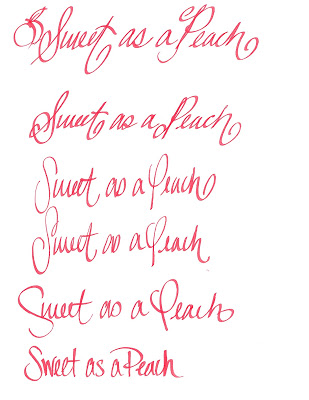 Sweet as a Peach
Sweet as a Peach
Sweet as a Peach
Sweet as a Peach
Sweet as a Peach
Sweet as a Peach